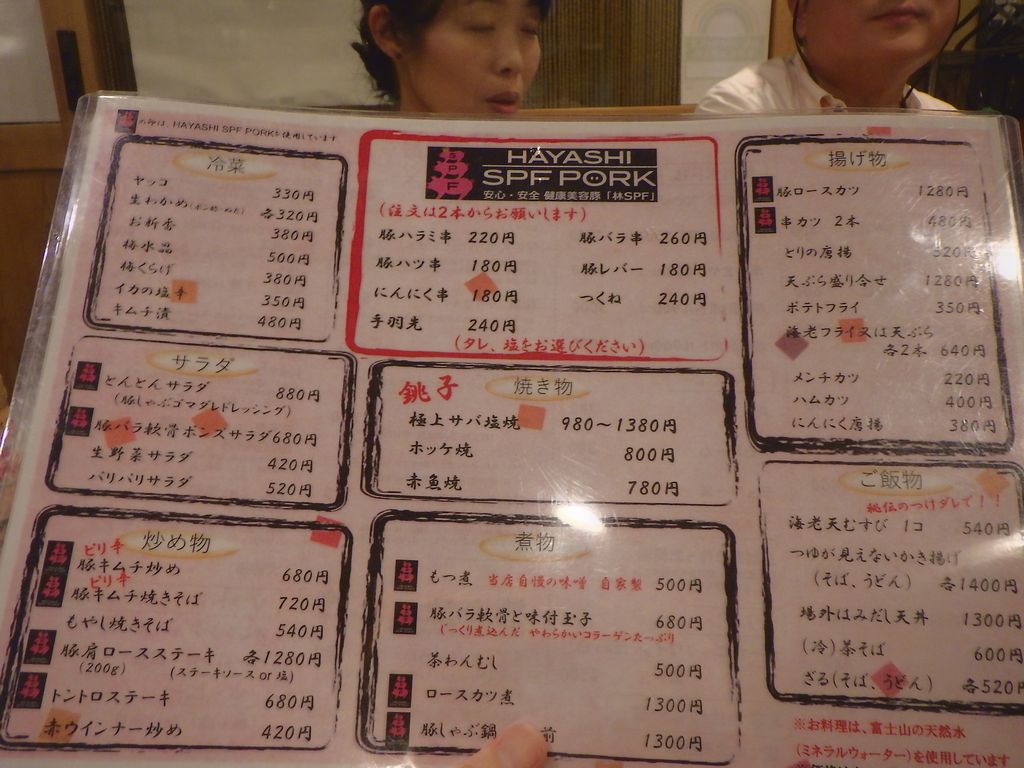 の印は、HAYASHI SPF PORKを使用しています
冷菜
ヤッコ 330円
生わかめ(ポン酢・ぬた) 各320円
お新香 380円
梅水晶 500円
梅くらげ 380円
イカの塩辛 350円
キムチ漬 480円
サラダ
とんとんサラダ 880円
(豚しゃぶゴマダレドレッシング)
豚バラ軟骨ポンズサラダ 680円
生野菜サラダ 420円
パリパリサラダ 520円
炒め物
ピリ辛
豚キムチ炒め 680円
ピリ辛
豚キムチ焼きそば 720円
もやし焼きそば 540円
豚肩ロースステーキ 各1280円
(200g) (ステーキソース or 塩)
トントロステーキ 680円
赤ウインナー炒め 420円
SPF
HAYASHI
SPF PORK
安心・安全 健康美容豚「林SPF」
(注文は2本からお願いします)
豚ハラミ串 220円 豚バラ串 260円
豚ハツ串 180円 豚レバー 180円
にんにく串 180円 つくね 240円
手羽先 240円
(タレ、塩をお選びください)
銚子 焼き物
極上サバ塩焼 980～1380円
ホッケ焼 800円
赤魚焼 780円
煮物
もつ煮 当店自慢の味噌 自家製 500円
豚バラ軟骨と味付玉子 680円
じっくり煮込んだ やわらかいコラーゲンたっぷり
茶わんむし 500円
ロースカツ煮 1300円
豚しゃぶ鍋 前 1300円
揚げ物
豚ロースカツ 1280円
串カツ 2本 480円
とりの唐揚 320円
天ぷら盛り合せ 1280円
ポテトフライ 350円
海老フライ又は天ぷら
各2本 640円
メンチカツ 220円
ハムカツ 400円
にんにく唐揚 380円
ご飯物
秘伝のつけダレで！！
海老天むすび 1コ 540円
つゆが見えないかき揚げ
(そば、うどん) 各1400円
場外はみだし天丼 1300円
(冷)茶そば 600円
ざる(そば、うどん) 各520円
※お料理は、富士山の天然水
(ミネラルウォーター)を使用しています